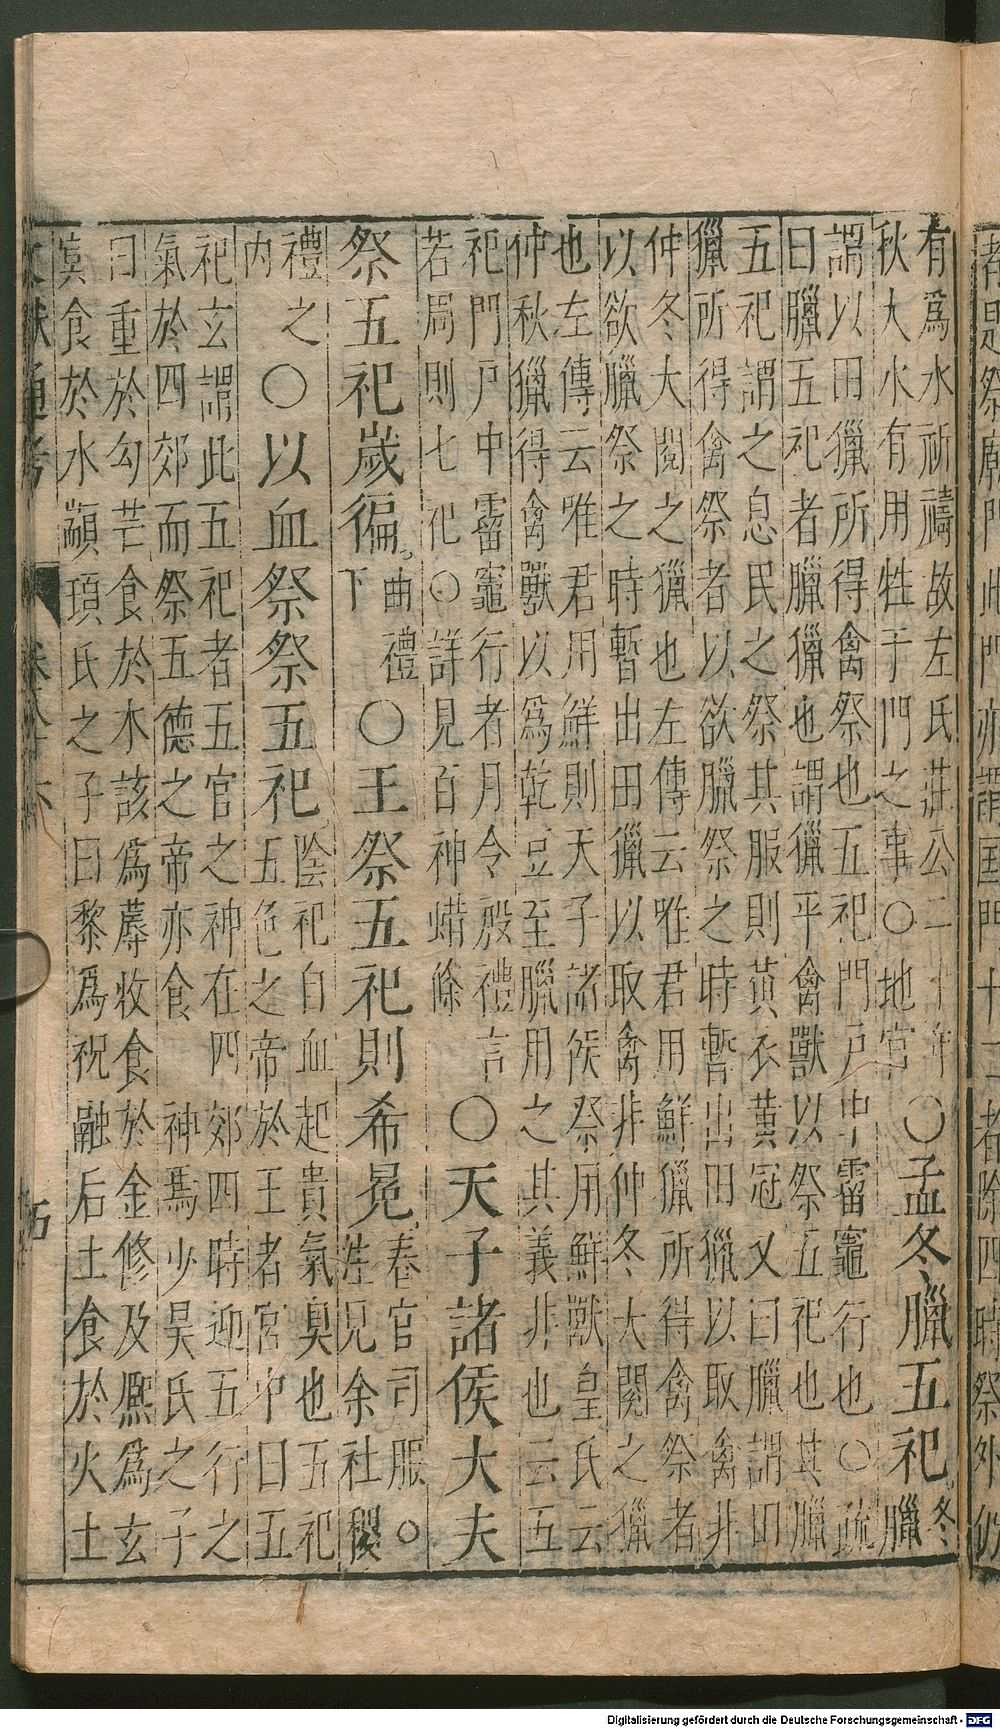 者是祭廟門此門亦謂國門十二者除四時祭外仍
有爲水祈禱故左氏莊公二十五年
秋大水有用牲于門之事○地官
○孟冬臘五祀
冬
臘
謂以田獵所得禽祭也五祀門戶中霤竈行也○疏
曰臘五祀者臘獵也謂獵平禽獸以祭五祀也其臘
五祀謂之息民之祭其服則黃衣黃冠又曰臘謂田
獵所得禽祭者以欲臘祭之時暫出田獵以取禽非
仲冬大閱之獵也左傳云唯君用鮮獵所得禽祭者
以欲臘祭之時暫出田獵以取禽非仲冬大閱之獵
也左傳云唯君用鮮則天子諸侯祭用鮮獸皇氏云
仲秋獵得禽獸以爲乾豆至臘用之其義非也云五
祀門戶中霤竈行者月令殷禮言
若周則七祀○詳見百神蜡條
○天子諸侯大夫
祭五祀歲徧
曲禮
下
○王祭五祀則希冕
春官司服○
註見余社稷
禮之
內
○以血祭祭五祀
陰祀自血起貴氣臭也五祀
五色之帝於王者宮中曰五
祀玄謂此五祀者五官之神在四郊四時迎五行之
氣於四郊而祭五德之帝亦食神焉少昊氏之子
曰重於勾芒食於木該爲蓐收食於金修及熈爲玄
冥食於水顓頊氏之子曰黎爲祝融后土食於火土
文獻通考 卷八十六 五
Digitalisierung gefördert durch die Deutsche Forschungsgemeinschaft - DFG